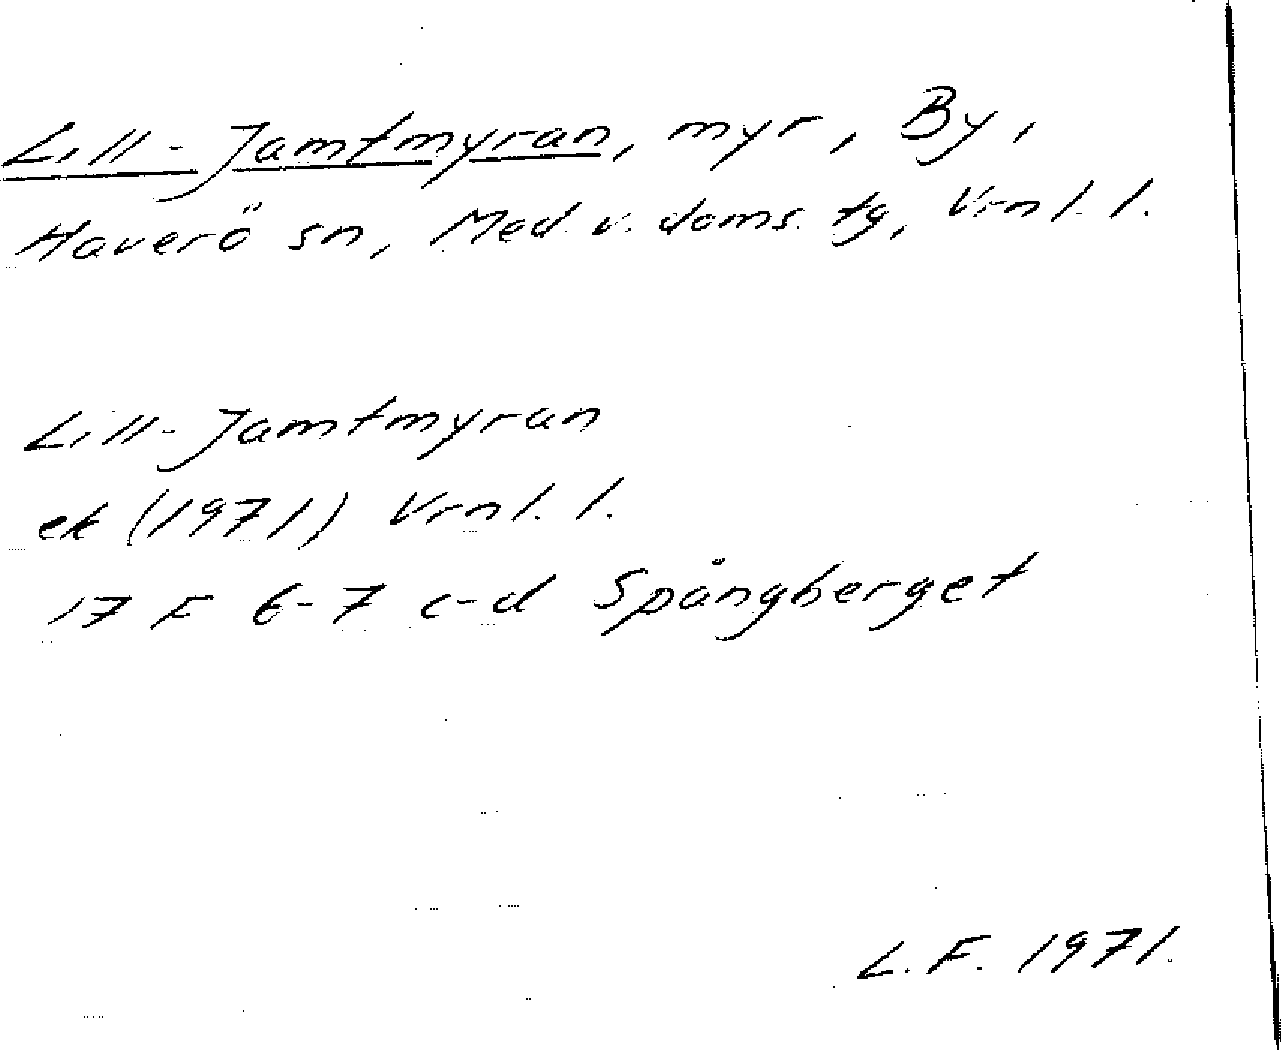 Lill-Jamtmyran, myr, By,
Haverö sn, Med. v. doms. tg, Vrnl. l.
Lill-Jamtmyran
ek (1971) Vrnl. l.
17 F 6-7 c-d Spångberget
L. F. 1971.